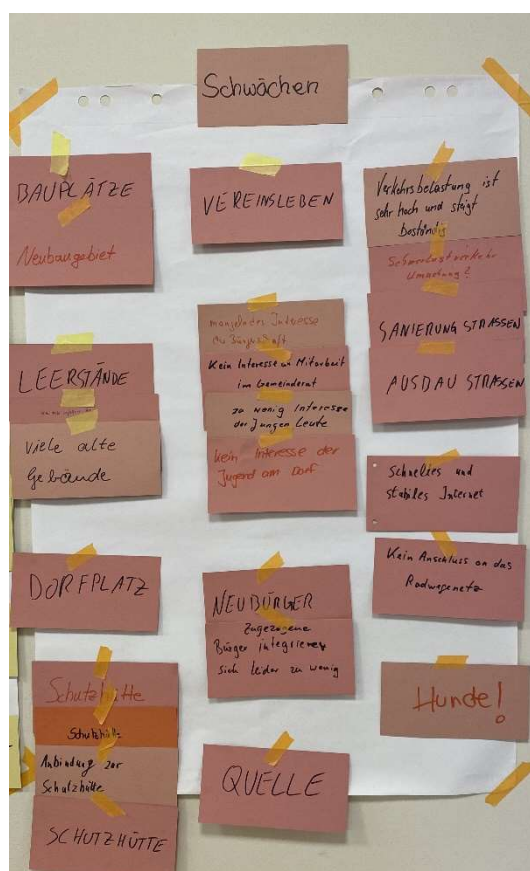 Schwächen
BAUPLÄTZE
Neubaugebiet
LEERSTÄNDE
Viele alte
Gebäude
DORFPLATZ
Schutzhütte
Schutzhütte
Anbindung zur
Schutzhütte
SCHUTZHÜTTE
VEREINSLEBEN
mangelndes Interesse
Kein Interesse an Mitarbeit
im Gemeinderat
zu wenig Interesse
der Jungen Leute
kein Interesse der
Jugend am Dorf
NEUBÜRGER
Zugezogene
Bürger integrieren
sich leider zu wenig
QUELLE
Verkehrsbelastung ist
sehr hoch und steigt
beständig
Schwerlastverkehr
Umgehung?
SANIERUNG STRASSEN
AUSBAU STRASSEN
Schnelles und
stabiles Internet
Kein Anschluss an das
Radwegenetz
Hunde!